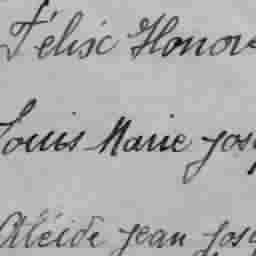 Félix Honoré
Louis Marie Jos
Alcide Jean Jos